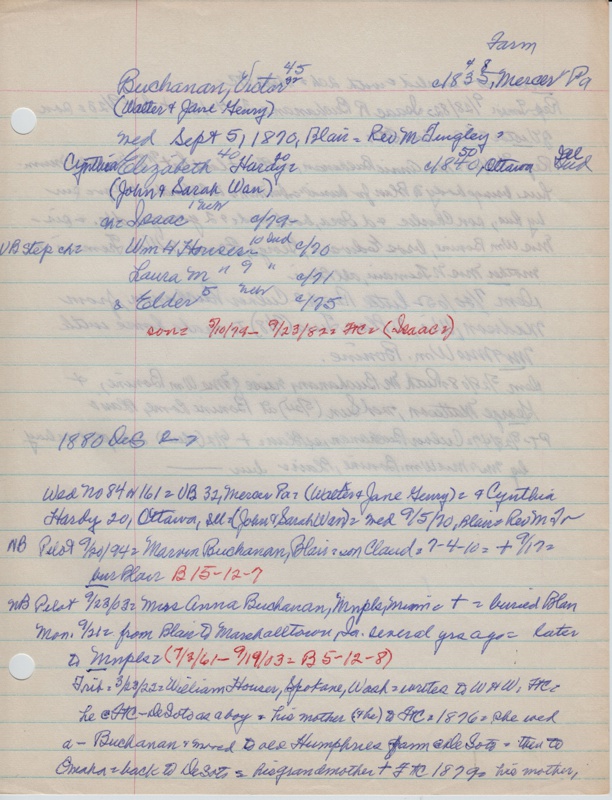 Farm
Buchanan, Victor 45 c/1835, Mercer Pa
(Walter & Jane Henry)
wed Sept 5, 1870, Blair = Rev M Tingley =
Cynthia Elizabeth 40 Hardy = c/1840, 50 Ottawa Ill
(John & Sarah Wan)
ch = Isaac 1 c/79 -
VB Step ch = Wm H Houser = 10 c/70
Laura M " 9 " c/71
& Elder 5 c/75
son = 5/10/79 - 9/23/82 = FtC = (Isaac =)
1880 DeS
Wed No 84 161 = VB 32, Mercer Pa = (Walter & Jane Henry) = & Cynthia
Hardy 20, Ottawa, Ill = (John & Sarah Wan) = wed 9/5/70, Blair = Rev M T
NB Pilot 9/20/94 = Marvin Buchanan, Blair = son Claud = 7-4-10 = + 9/17 =
bur Blair B 15-12-7
NB Pilot 9/23/03 = Miss Anna Buchanan, Mnpls, Minn = + = buried Blair
Mon. 9/21 = from Blair to Marshalltown, Ia. several yrs ago = later
to Mnpls = (7/3/61 - 9/19/03 = B 5-12-8)
Trib = 3/23/22 = William Houser, Spokane, Wash = writes to WHW, FtC =
he FtC - DeSoto as a boy = his mother (+he) to FtC = 1876 = she wed
a - Buchanan & moved to old Humphries farm DeSoto = then to
Omaha = back to DeSoto = his grandmother + FtC 1879 = his mother,